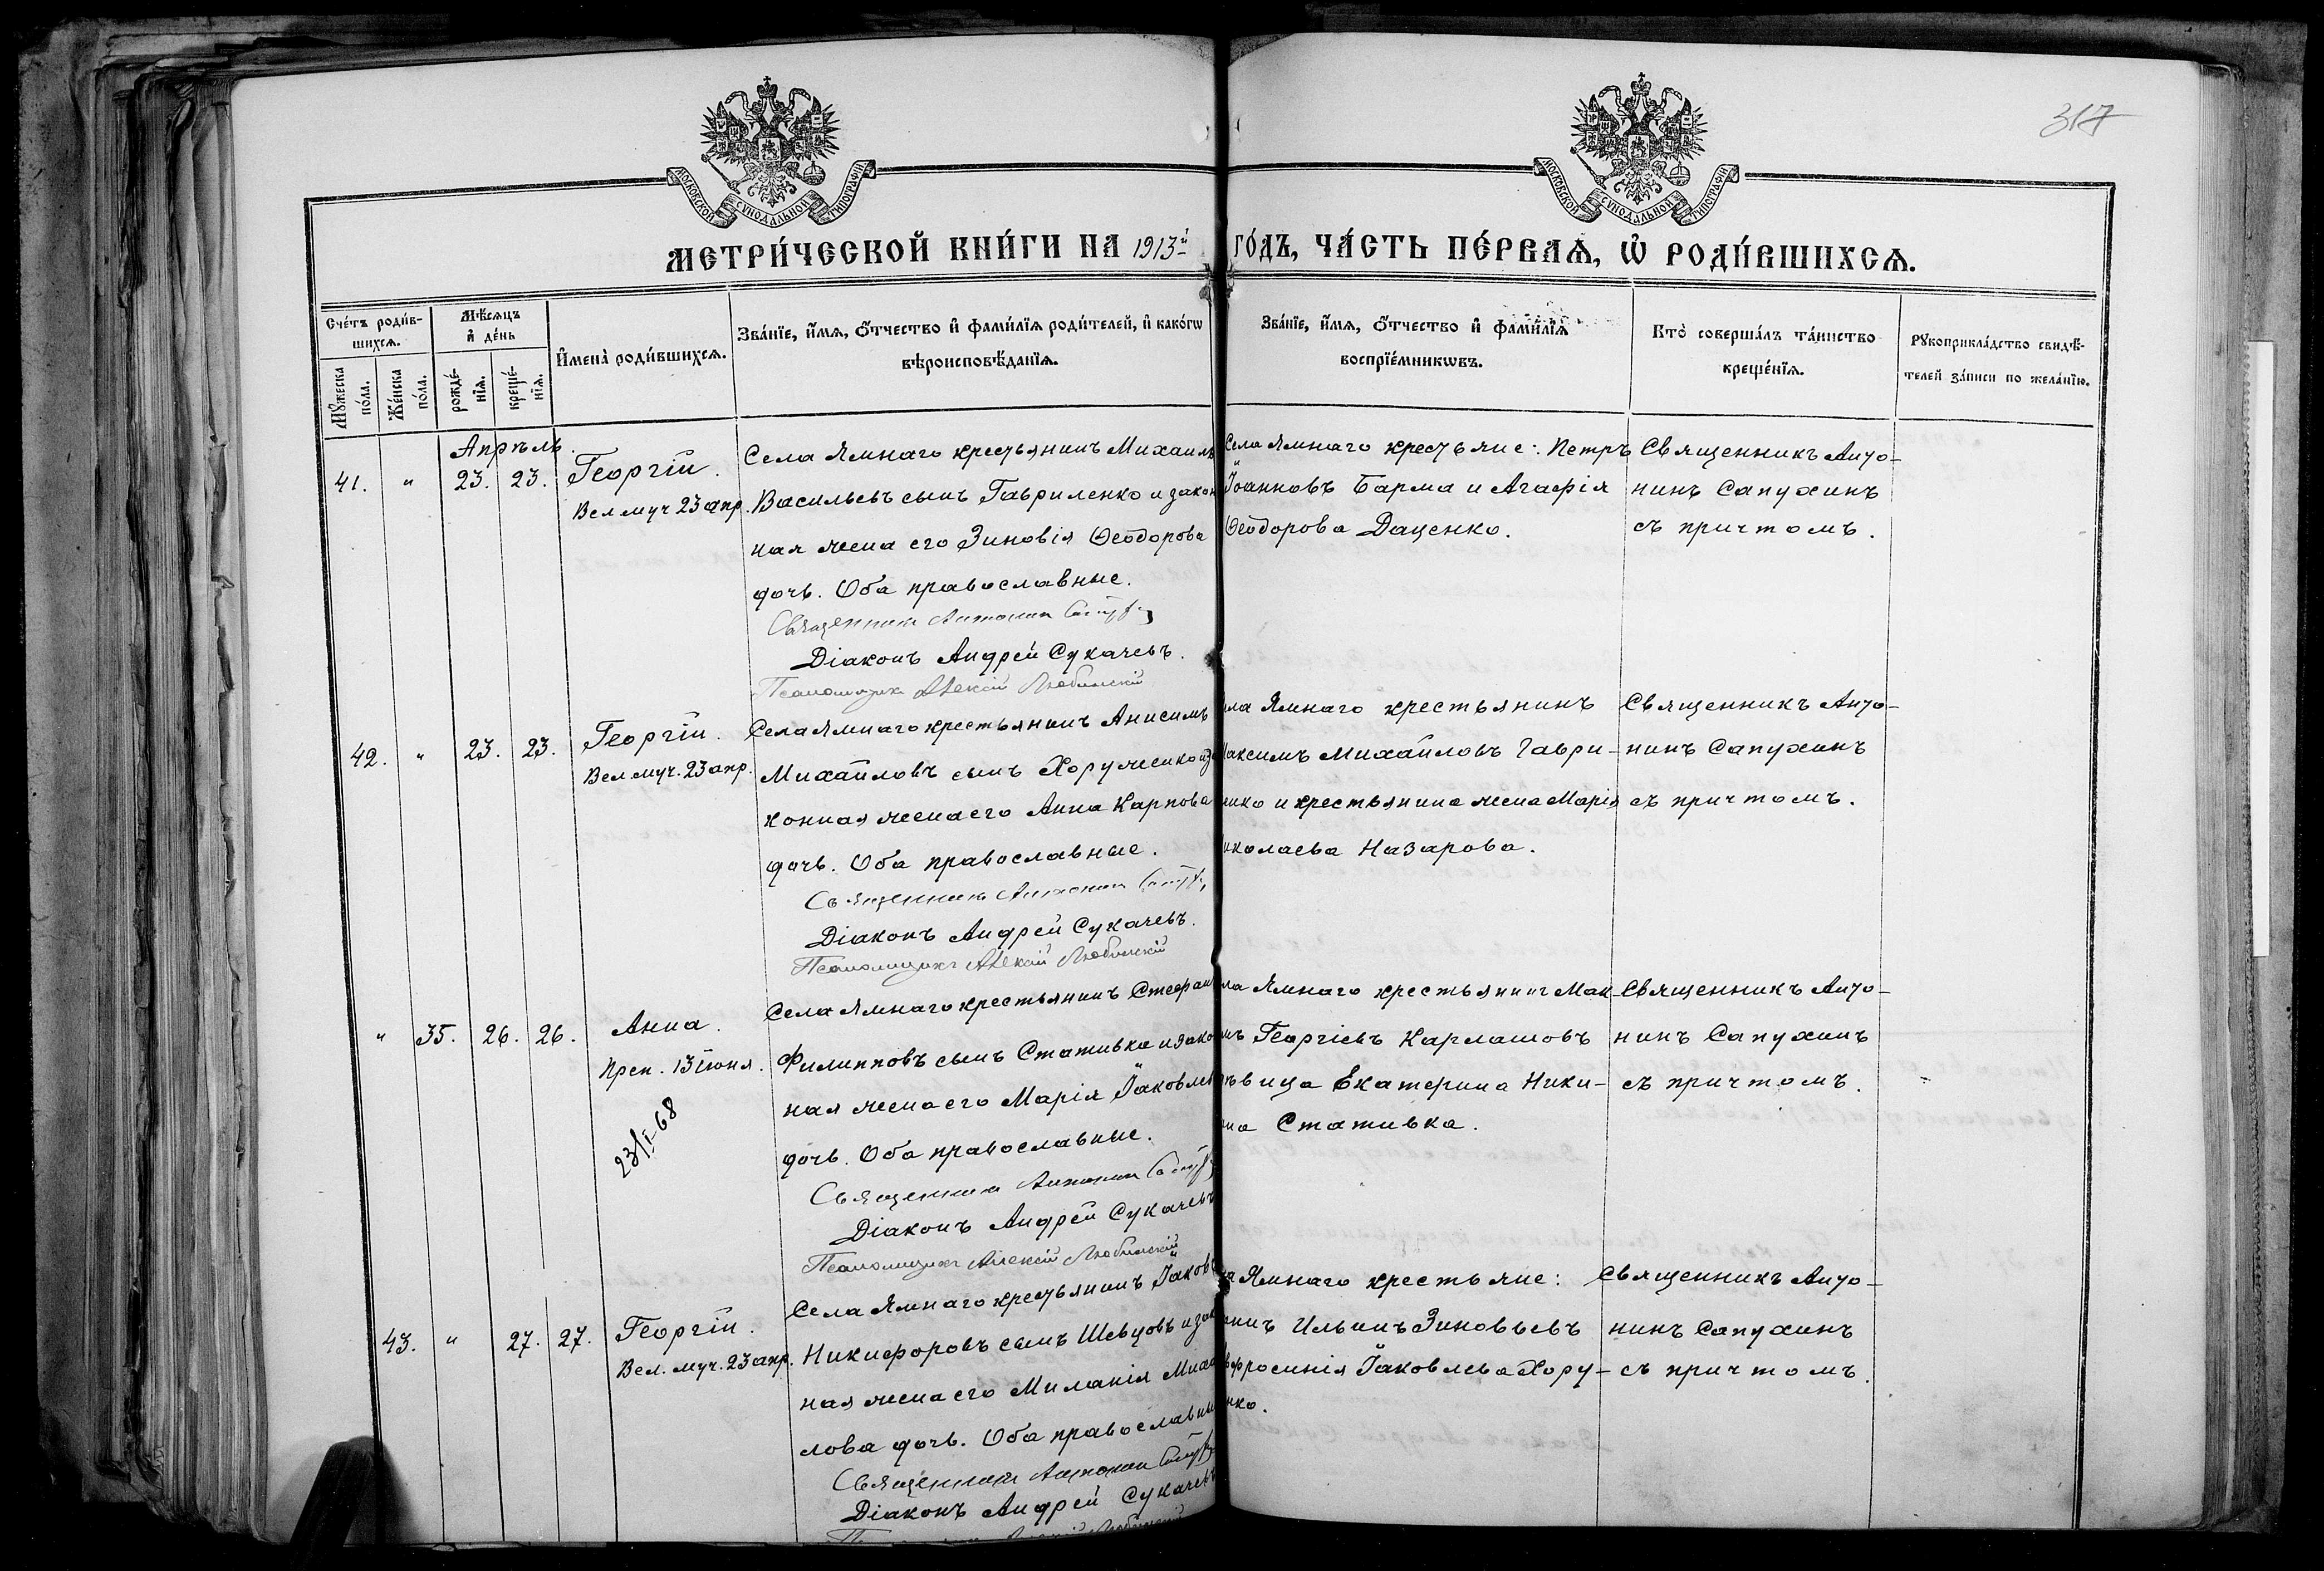 317
МОСКОВСКОЙ СѴНОДАЛЬНОЙ ТИПОГРАФІИ
МОСКОВСКОЙ СѴНОДАЛЬНОЙ ТИПОГРАФІИ
МЕТРИ́ЧЕСКОЙ КНИ́ГИ НА 1913й ГО́ДЪ, ЧА́СТЬ ПЕ́РВАѦ, Ѡ҆ РОДИ́ВШИХСѦ.
Сче́тъ роди́в-
шихсѧ.
Мꙋ́жеска
по́ла.
Же́нска
по́ла.
Мѣ́сѧцъ
и҆ де́нь
рожде́-
нїѧ.
креще́-
нїѧ.
И҆мена̀ роди́вшихсѧ.
Зва́нїе, и҆́мѧ, ѻ҆́тчество и҆ фами́лїѧ роди́телей, и҆ како́гѡ
вѣроисповѣ́данїѧ.
Зва́нїе, и҆́мѧ, ѻ҆́тчество и҆ фами́лїѧ
воспрїе́мникѡвъ.
Кто̀ соверша́лъ та́инство
креще́нїѧ.
Рꙋкоприкла́дство свидѣ́-
телей за́писи по жела́нїю.
Апрѣль.
41. " 23. 23. Георгій.
Вел муч 23 апр.
Села Ямнаго крестьянинъ Михаилъ
Васильевъ сынъ Гавриленко и закон
ная жена его Зиновія Ѳеодорова
дочь. Оба православные.
Священникъ Антонин
Діаконъ Андрей Сукачевъ.
Псаломщикъ Алексій Любинскій
Села Ямнаго крестьяне: Петръ
Іоанновъ Барма и Агафія
Ѳеодорова Даценко.
Священникъ Анто-
нинъ Сапухинъ
съ причтомъ.
42. " 23. 23. Георгій.
Вел. муч. 23 апр.
Села Ямнаго крестьянинъ Анисимъ
Михайловъ сынъ Хоруженко и за
конная жена его Анна Карпова
дочь. Оба православные.
Священникъ Антонин
Діаконъ Андрей Сукачевъ.
Псаломщикъ Алексій Любинскій
ла Ямнаго крестьянинъ
аксимъ Михайловъ Гаври-
нко и крестьянина жена Марія
иколаева Назарова.
Священникъ Анто-
нинъ Сапухинъ
съ причтомъ.
" 35. 26. 26. Анна.
Преп. 13 іюня.
23/I-68
Села Ямнаго крестьянинъ Стефан
Филипповъ сынъ Стативка и зако
ная жена его Марія Іаковлев
дочь. Оба православные.
Священникъ Антонин
Діаконъ Андрей Сукачевъ
Псаломщикъ Алексій Любинскій
ла Ямнаго крестьянинъ Мак-
мъ Георгіевъ Карлашовъ
ѣвица Екатерина Ники-
на Стативка.
Священникъ Анто-
нинъ Сапухинъ
съ причтомъ.
43. " 27. 27. Георгій.
Вел. муч. 23 апр.
Села Ямнаго крестьянинъ Іаковъ
Никифоровъ сынъ Шевцовъ и зак
ная жена его Миланія Миха
лова дочь. Оба православны
Священникъ Антонин
Діаконъ Андрей Сукачевъ
Любинскій
а Ямнаго крестьяне:
нинъ Ильинъ Зиновьевъ
вфросинія Іаковлева Хору-
нко.
Священникъ Анто-
нинъ Сапухинъ
съ причтомъ.